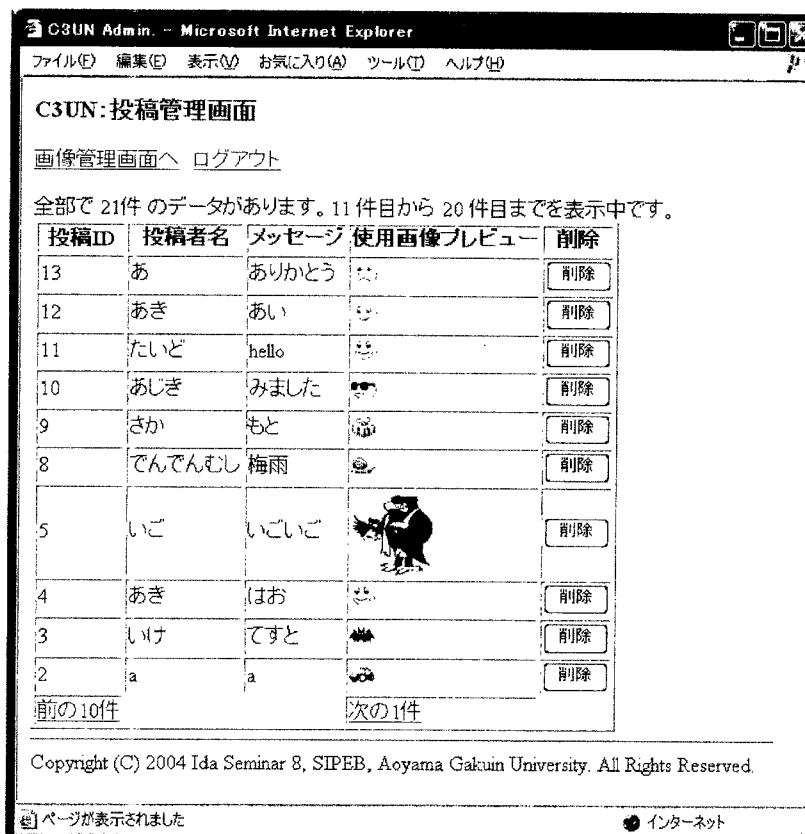 C3UN Admin. - Microsoft Internet Explorer
ファイル(F) 編集(E) 表示(V) お気に入り(A) ツール(T) ヘルプ(H)
C3UN:投稿管理画面
画像管理画面へ ログアウト
全部で 21件 のデータがあります。11 件目から 20 件目までを表示中です。
投稿ID 投稿者名 メッセージ 使用画像プレビュー 削除
13 あ ありかとう 削除
12 あき あい 削除
11 たいど hello 削除
10 あじき みました 削除
9 さか もと 削除
8 でんでんむし 梅雨 削除
5 いご いごいご 削除
4 あき はお 削除
3 いけ てすと 削除
2 a a 削除
前の10件 次の1件
Copyright (C) 2004 Ida Seminar 8, SIPEB, Aoyama Gakuin University. All Rights Reserved.
ページが表示されました インターネット